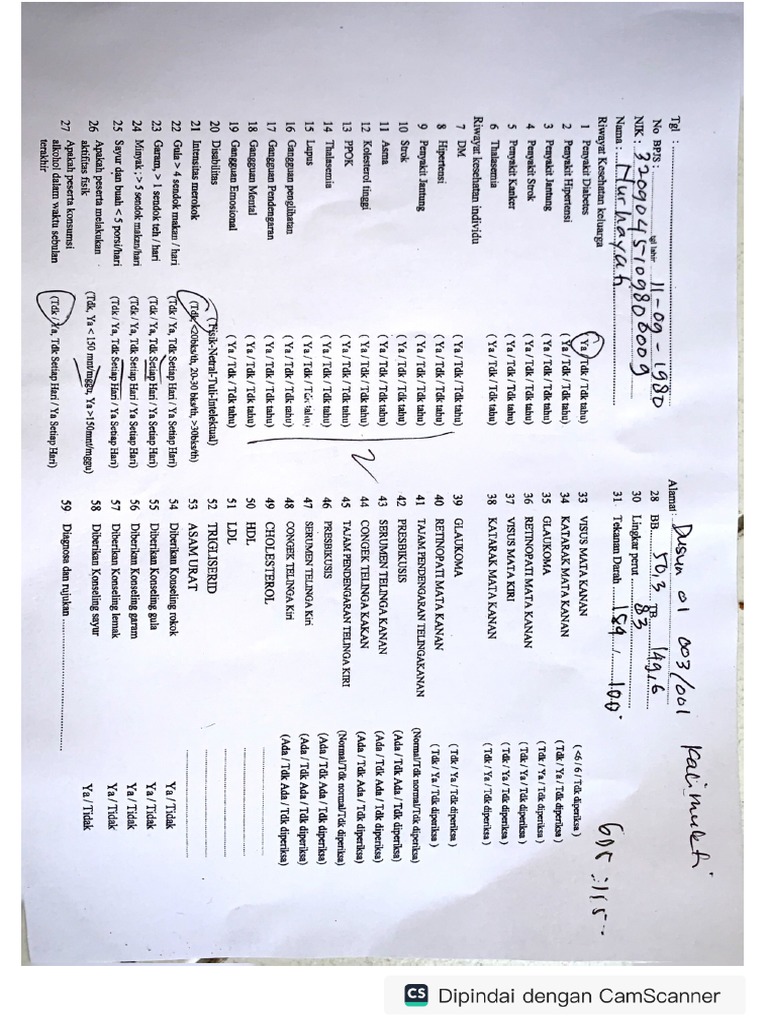 Tgl :
No BPJS : tgl lahir 11-09-1980
NIK : 3209045109808009
Nama : Nurhayati
Riwayat Kesehatan keluarga
1 Penyakit Diabetes (Ya / Tdk / Tdk tahu)
2 Penyakit Hipertensi (Ya / Tdk / Tdk tahu)
3 Penyakit Jantung (Ya / Tdk / Tdk tahu)
4 Penyakit Strok (Ya / Tdk / Tdk tahu)
5 Penyakit Kanker (Ya / Tdk / Tdk tahu)
6 Thalasemia (Ya / Tdk / Tdk tahu)
Riwayat kesehatan individu
7 DM (Ya / Tdk / Tdk tahu)
8 Hipertensi (Ya / Tdk / Tdk tahu)
9 Penyakit Jantung (Ya / Tdk / Tdk tahu)
10 Strok (Ya / Tdk / Tdk tahu)
11 Asma (Ya / Tdk / Tdk tahu)
12 Kolesterol tinggi (Ya / Tdk / Tdk tahu)
13 PPOK (Ya / Tdk / Tdk tahu)
14 Thalasemia (Ya / Tdk / Tdk tahu)
15 Lupus (Ya / Tdk / Tdk tahu)
16 Gangguan penglihatan (Ya / Tdk / Tdk tahu)
17 Gangguan Pendengaran (Ya / Tdk / Tdk tahu)
18 Gangguan Mental (Ya / Tdk / Tdk tahu)
19 Gangguan Emosional (Ya / Tdk / Tdk tahu)
20 Disabilitas (Fisik-Netral-Tuli-Intelektual)
21 Intensitas merokok (Tdk, <20bks/th, 20-30 bks/th, >30bks/th)
22 Gula > 4 sendok makan / hari (Tdk / Ya, Tdk Setiap Hari / Ya Setiap Hari)
23 Garam, > 1 sendok teh / hari (Tdk / Ya, Tdk Setiap Hari / Ya Setiap Hari)
24 Minyak : > 5 sendok makan/hari (Tdk / Ya, Tdk Setiap Hari / Ya Setiap Hari)
25 Sayur dan buah < 5 porsi/hari (Tdk / Ya, Tdk Setiap Hari / Ya Setiap Hari)
26 Apakah peserta melakukan (Tdk, Ya < 150 mnt/mggu, Ya >150mnt/mggu)
aktifitas fisik
27 Apakah peserta konsumsi (Tdk / Ya, Tdk Setiap Hari / Ya Setiap Hari)
alkohol dalam waktu sebulan
terakhir
Alamat : Dusun 01 003/001 Kalimukti
28 BB 50,3 TB 149,6
30 Lingkar perut 83
31 Tekanan Darah 189 / 100
GDS : 115
33 VISUS MATA KANAN (<6/6 / Tdk diperiksa)
34 KATARAK MATA KANAN (Tdk / Ya / Tdk diperiksa)
35 GLAUKOMA (Tdk / Ya / Tdk diperiksa)
36 RETINOPATI MATA KANAN (Tdk / Ya / Tdk diperiksa)
37 VISUS MATA KIRI (Tdk / Ya / Tdk diperiksa)
38 KATARAK MATA KANAN (Tdk / Ya / Tdk diperiksa)
39 GLAUKOMA (Tdk / Ya / Tdk diperiksa)
40 RETINOPATI MATA KANAN (Tdk / Ya / Tdk diperiksa)
41 TAJAM PENDENGARAN TELINGAKANAN (Normal/Tdk normal/Tdk diperiksa)
42 PRESBIKUSIS (Ada / Tdk Ada / Tdk diperiksa)
43 SERUMEN TELINGA KANAN (Ada / Tdk Ada / Tdk diperiksa)
44 CONGEK TELINGA KAKAN (Ada / Tdk Ada / Tdk diperiksa)
45 TAJAM PENDENGARAN TELINGA KIRI (Normal/Tdk normal/Tdk diperiksa)
46 PRESBIKUSIS (Ada / Tdk Ada / Tdk diperiksa)
47 SERUMEN TELINGA Kiri (Ada / Tdk Ada / Tdk diperiksa)
48 CONGEK TELINGA Kiri (Ada / Tdk Ada / Tdk diperiksa)
49 CHOLESTEROL
50 HDL
51 LDL
52 TRIGLISERID
53 ASAM URAT
54 Diberikan Konseling rokok Ya / Tidak
55 Diberikan Konseling gula Ya / Tidak
56 Diberikan Konseling garam Ya / Tidak
57 Diberikan Konseling lemak Ya / Tidak
58 Diberikan Konseling sayur Ya / Tidak
59 Diagnosa dan rujukan
CS Dipindai dengan CamScanner